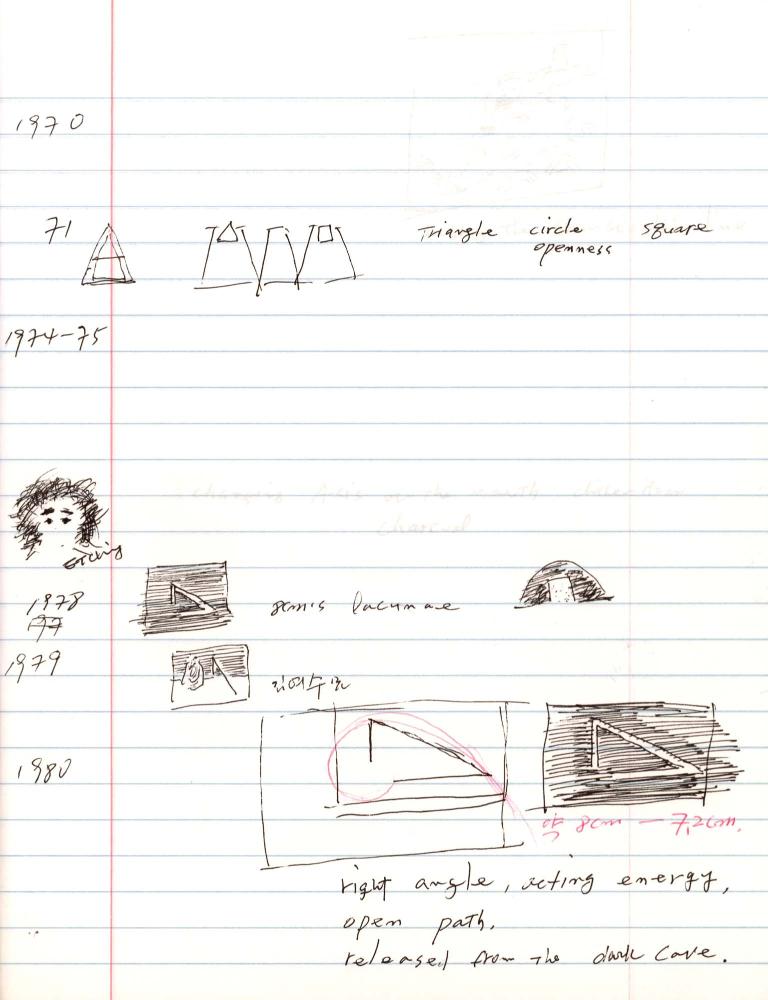 1970
71
Triangle circle square
openness
1974-75
etching
1978
lacunae
1979
1980
약 8cm - 7.2cm.
right angle, acting energy,
open path.
released from the dark cave.